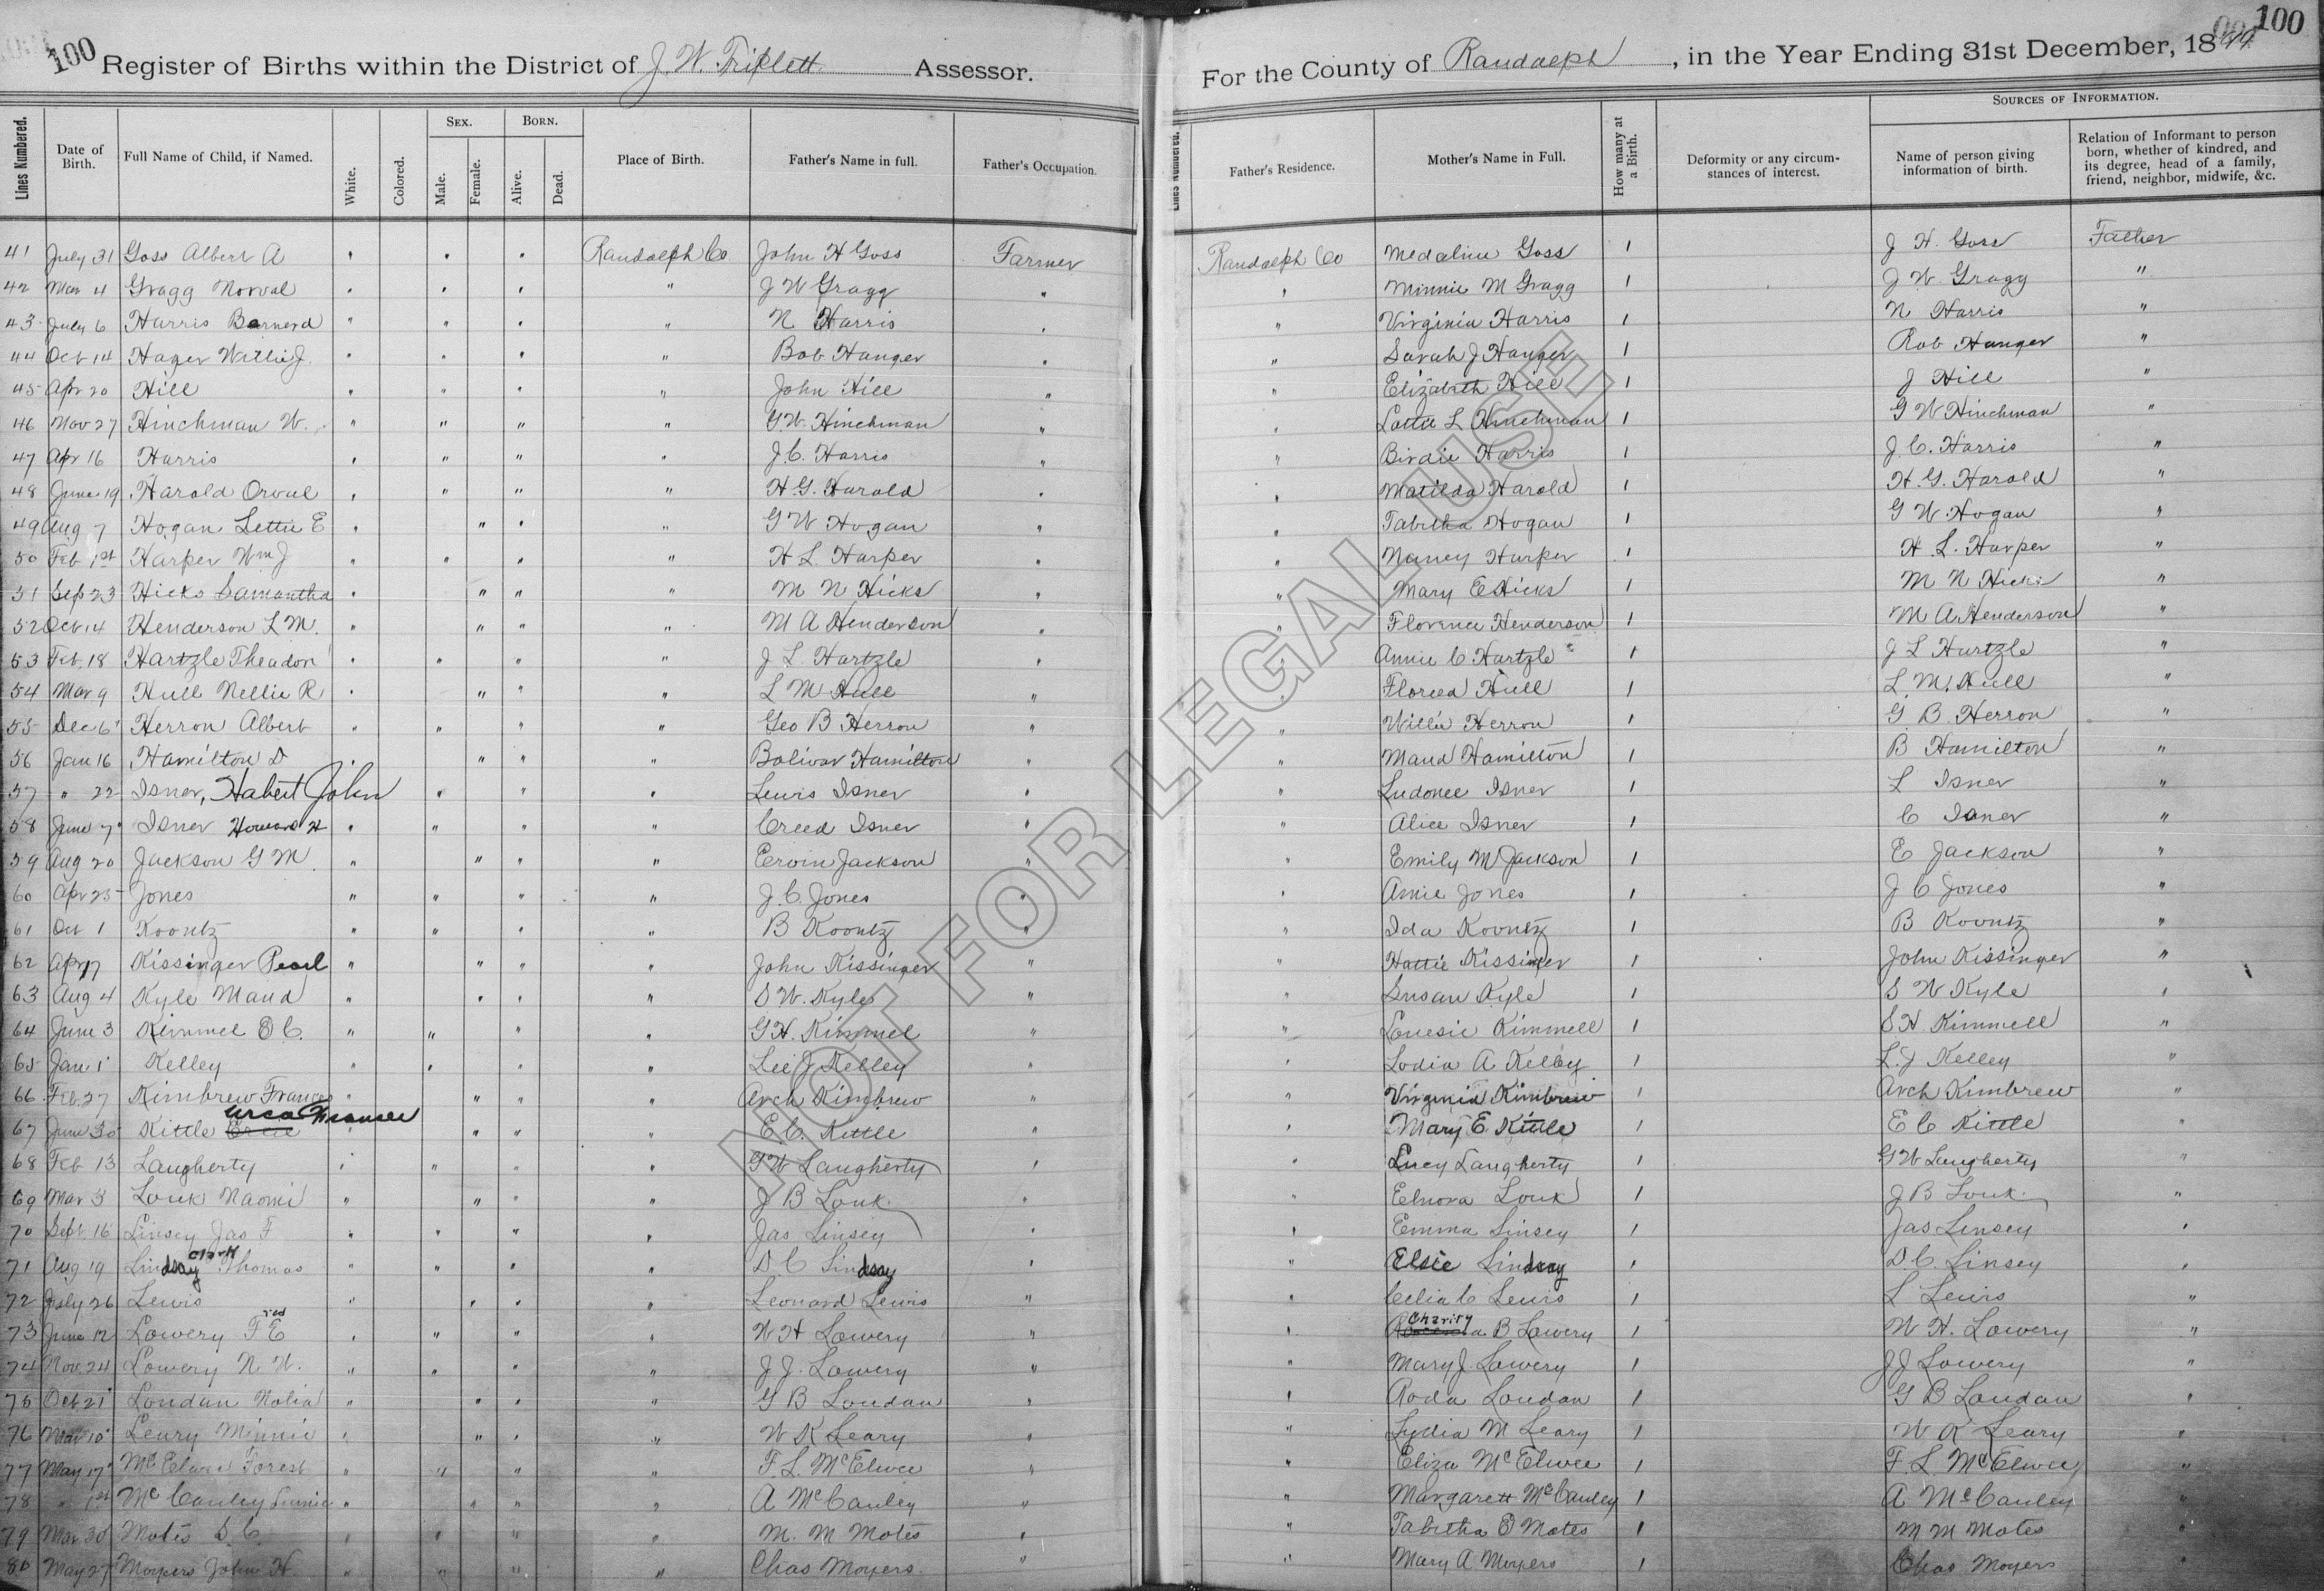 100 Register of Births within the District of J. W. Triplett Assessor. For the County of Randolph, in the Year Ending 31st December, 18 100
Lines Numbered. Date of Birth. Full Name of Child, if Named. White. Colored. Sex. Male. Female. Born. Alive. Dead. Place of Birth. Father's Name in full. Father's Occupation. Lines Numbered. Father's Residence. Mother's Name in Full. How many at a Birth. Deformity or any circumstances of interest. Sources of Information. Name of person giving information of birth. Relation of Informant to person born, whether of kindred, and its degree, head of a family, friend, neighbor, midwife, &c.
41 July 31 Goss Albert A " " " Randolph Co John H Goss Farmer Randolph Co Medaline Goss 1 J H. Goss Father
42 Mar 4 Gragg Norval " " " " J W Gragg " " Minnie M Gragg 1 J W. Gragg "
43 July 6 Harris Barnerd " " " " N Harris " " Virginia Harris 1 N Harris "
44 Oct 14 Hager Willie J. " " " " Bob Hanger " " Sarah J Hanger 1 Rob Hanger "
45 Apr 20 Hill " " " " John Hill " " Elizabeth Hill 1 J Hill "
46 Nov 27 Hinchman W. " " " " G. W. Hinchman " " Lottie L Hinchman 1 G W Hinchman "
47 Apr 16 Harris " " " " J. C. Harris " " Birdie Harris 1 J. C. Harris "
48 June 19 Harold Orval " " " " H. G. Harold " " Matilda Harold 1 H. G. Harold "
49 Aug 7 Hogan Lettie E " " " " G W Hogan " " Tabitha Hogan 1 G W Hogan "
50 Feb 1st Harper Wm J " " " " H L Harper " " Nancy Harper 1 H. L. Harper "
51 Sep 23 Hicks Samantha " " " " M N Hicks " " Mary E Hicks 1 M N Hicks "
52 Oct 14 Henderson L M. " " " " M A Henderson " " Florence Henderson 1 M A Henderson "
53 Feb 18 Hartzle Theadon " " " " J L Hartzle " " Annie C Hartzle 1 J L Hartzle "
54 Mar 9 Hull Nellie R " " " " L M Hull " " Floreed Hull 1 L. M. Hull "
55 Dec 6 Herron Albert " " " " Geo B Herron " " Willie Herron 1 G B Herron "
56 Jan 16 Hamilton D " " " " Bolivar Hamilton " " Maud Hamilton 1 B Hamilton "
57 " 22 Isner, Habert John " " " Lewis Isner " " Ludonee Isner 1 L Isner "
58 June 7 Isner Howard H " " " " Creed Isner " " Alice Isner 1 C Isner "
59 Aug 20 Jackson G M. " " " " Ervin Jackson " " Emily M Jackson 1 E Jackson "
60 Apr 25 Jones " " " " J. C. Jones " " Amie Jones 1 J C Jones "
61 Oct 1 Koontz " " " " B Koontz " " Ida Koontz 1 B Koontz "
62 Apr 17 Kissinger Pearl " " " " John Kissinger " " Hattie Kissinger 1 John Kissinger "
63 Aug 4 Kyle Maud " " " " S W. Kyle " " Susan Kyle 1 S W Kyle "
64 June 3 Kimmel O C. " " " " G H. Kimmel " " Louesie Kimmell 1 S H. Kimmell "
65 Jan 1 Kelley " " " " Lee J Kelley " " Lodia A Kelley 1 L. J Kelley "
66 Feb. 27 Kimbrew Frances " " " " Arch Kimbrew " " Virginia Kimbrew 1 Arch Kimbrew "
67 June 30 Kittle Urca Frances " " " " E. C. Kittle " " Mary E Kittle 1 E C Kittle "
68 Feb 13 Laugherty " " " " G W Laugherty " " Lucy Laugherty 1 G W Laugherty "
69 Mar 3 Louk Naomi " " " " J B Louk. " " Elnora Louk 1 J B Louk. "
70 Sept. 16 Linsey Jas F " " " " Jas Linsey " " Emma Linsey 1 Jas Linsey "
71 Aug 19 Lindsay Clark Thomas " " " " D. C Lindsay " " Elsie Lindsay 1 D. C. Linsey "
72 July 26 Lewis " " " " Leonard Lewis " " Celia C Lewis 1 L Lewis "
73 June 12 Lowery Fred E " " " " W H Lowery " " Charity B Lowery 1 W H. Lowery "
74 Nov. 24 Lowery N. W. " " " " J J. Lowery " " Mary J. Lowery 1 J J Lowery "
75 Oct 21 Loudan Nolia " " " " G B Loudan " " Roda Loudan 1 G B Loudan "
76 Mar 10 Leary Minnie " " " " W K Leary " " Lydia M Leary 1 W K Leary "
77 May 17 McElwee Forest " " " " F. L. McElwee " " Eliza McElwee 1 F. L. McElwee "
78 " 1st McCauley " " " " A McCauley " " Margarett McCauley 1 A McCauley "
79 Mar 30 Motes D. C. " " " " M. M Motes " " Tabitha O Motes 1 M M Motes "
80 May 27 Moyers John H. " " " " Chas Moyers " " Mary A. Moyers 1 Chas Moyers "
NOT FOR LEGAL USE